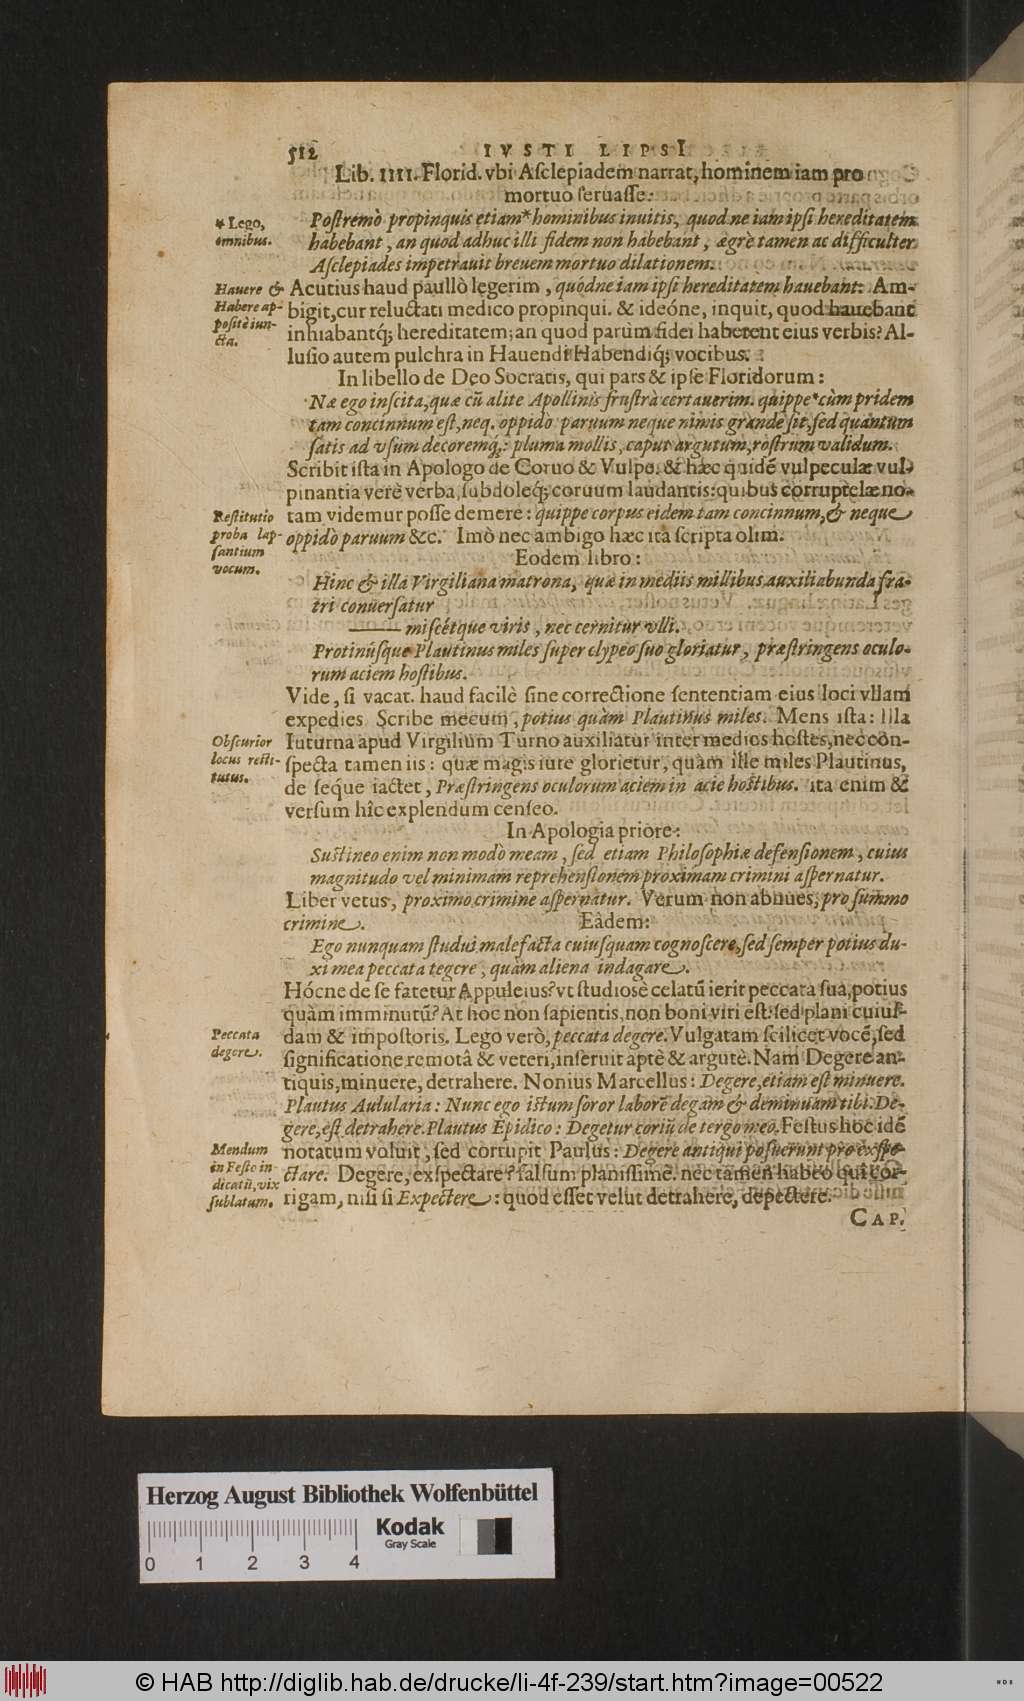 512 IVSTI LIPSI
Lib. IIII. Florid. vbi Aſclepiadem narrat, hominem iam pro
mortuo ſeruaſſe:
Poſtremò propinquis etiam* hominibus inuitis, quod ne iam ipſi hereditatem
habebant, an quod adhuc illi fidem non habebant, ægrè tamen ac difficulter
Aſclepiades impetrauit breuem mortuo dilationem.
* Lego,
omnibus.
Acutius haud paullò legerim, quodne iam ipſi hereditatem hauebant: Am-
bigit, cur reluctati medico propinqui. & ideóne, inquit, quod hauebant
inhiabantq́; hereditatem; an quod parùm fidei haberent eius verbis? Al-
luſio autem pulchra in Hauendi Habendiq́; vocibus.
Hauere &
Habere ap-
poſitè iun-
cta.
In libello de Deo Socratis, qui pars & ipſe Floridorum:
Næ ego inſcita, quæ cū alite Apollinis fruſtrà certauerim. quippe* cùm pridem
tam concinnum eſt, neq. oppidò paruum neque nimis grande ſit, ſed quantum
ſatis ad vſum decoremq́;: pluma mollis, caput argutum, roſtrum validum.
Scribit iſta in Apologo de Coruo & Vulpe. & hæc quidē vulpeculæ vul-
pinantia verè verba, ſubdoleq́; coruum laudantis: quibus corruptelæ no-
tam videmur poſſe demere: quippe corpus eidem tam concinnum, & neque
oppidò paruum &c. Imò nec ambigo hæc ità ſcripta olim.
Reſtitutio
proba lap-
ſantium
vocum.
Eodem libro:
Hinc & illa Virgiliana matrona, quæ in mediis millibus auxiliabunda fra-
tri conuerſatur
—— miſcétque viris, nec cernitur vlli.
Protinúſque Plautinus miles ſuper clypeo ſuo gloriatur, præſtringens oculo-
rum aciem hoſtibus.
Vide, ſi vacat. haud facilè ſine correctione ſententiam eius loci vllam
expedies. Scribe mecum, potius quàm Plautinus miles. Mens iſta: Illa
Iuturna apud Virgilium Turno auxiliatur inter medios hoſtes, nec con-
ſpecta tamen iis: quæ magis iure glorietur, quàm ille miles Plautinus,
de ſeque iactet, Præſtringens oculorum aciem in acie hoſtibus. ita enim &
verſum hîc explendum cenſeo.
Obſcurior
locus reſti-
tutus.
In Apologia priore:
Suſtineo enim non modò meam, ſed etiam Philoſophiæ defenſionem, cuius
magnitudo vel minimam reprehenſionem proximam crimini aſpernatur.
Liber vetus, proximo crimine aſpernatur. Verum non abnues, pro ſummo
crimine. Eâdem:
Ego nunquam ſtudui malefacta cuiuſquam cognoſcere, ſed ſemper potius du-
xi mea peccata tegere, quàm aliena indagare.
Hócne de ſe fatetur Appuleius? vt ſtudiosè celatū ierit peccata ſua, potius
quàm imminutū? At hoc non ſapientis, non boni viri eſt: ſed plani cuiuſ-
dam & impoſtoris. Lego verò, peccata degere. Vulgatam ſcilicet vocē, ſed
ſignificatione remotâ & veteri, inſeruit aptè & argutè. Nam Degere an-
tiquis, minuere, detrahere. Nonius Marcellus: Degere, etiam eſt minuere.
Plautus Aulularia: Nunc ego iſtum ſoror laborē degam & deminuam tibi. De-
gere, eſt detrahere. Plautus Epidico: Degetur coriū de tergo meo. Feſtus hoc idē
notatum voluit, ſed corrupit Paulus: Degere antiqui poſuerunt pro exſpe-
ctare. Degere, exſpectare? falſum planiſſimè. nec tamen habeo qui cor-
rigam, niſi ſi Expectere: quod eſſet velut detrahere, depectere.
Peccata
degere.
Mendum
in Feſto in-
dicatū, vix
ſublatum.
CAP.
Herzog August Bibliothek Wolfenbüttel
0 1 2 3 4
Kodak
Gray Scale
© HAB http://diglib.hab.de/drucke/li-4f-239/start.htm?image=00522